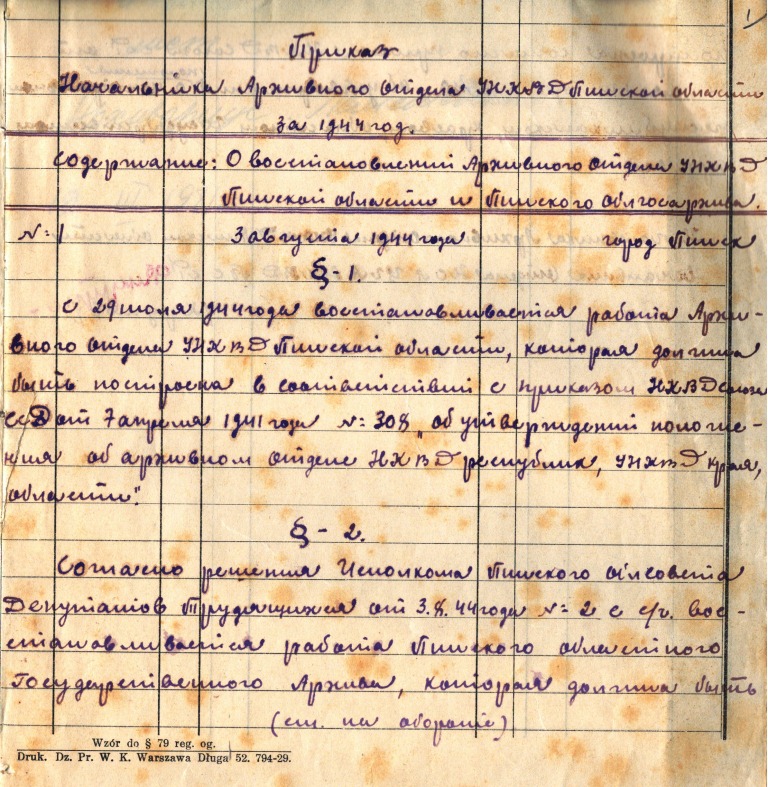 1
Приказ
Начальника Архивного отдела УНКВД Пинской области
за 1944 год.
Содержание: О восстановлении Архивного отдела УНКВД
Пинской области и Пинского облгосархива.
№ 1 3 августа 1944 года город Пинск
§ - 1.
С 29 июля 1944 года восстанавливается работа Архи-
вного отдела УНКВД Пинской области, которая должна
быть построена в соответствии с приказом НКВД союза
ССР от 7 апреля 1941 года № 308 „об утверждении положе-
ния об архивном отделе НКВД республик, УНКВД края,
области".
§ - 2.
Согласно решения Исполкома Пинского облсовета
Депутатов Трудящихся от 3.8.44 года № 2 с с/г. вос-
станавливается работа Пинского областного
Государственного Архива, которая должна быть
(см. на обороте)
Wzór do § 79 reg. og.
Druk. Dz. Pr. W. K. Warszawa Długa 52. 794-29.